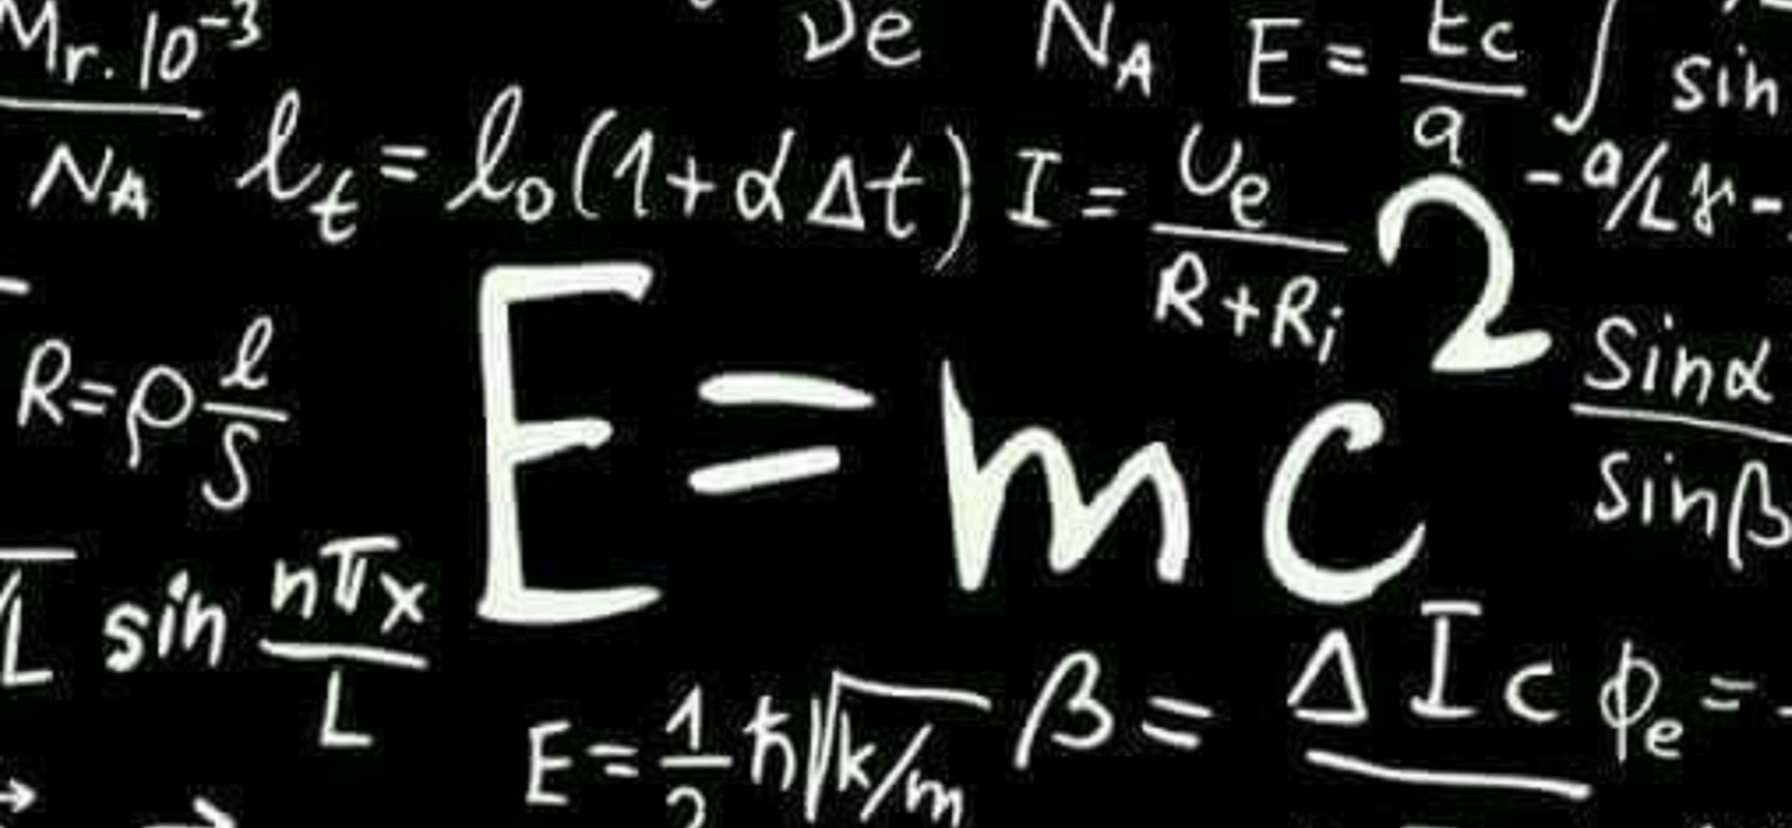 Mr.10⁻³ νe N_A E = Ec/a ∫ sin
N_A l_t = l_0(1+αΔt) I = U_e/(R+R_i) -a/L
R=ρ l/S E=mc² sinα/sinβ
L sin nπx/L
E=1/2 ħ√k/m β= ΔI_c ϕ_e =